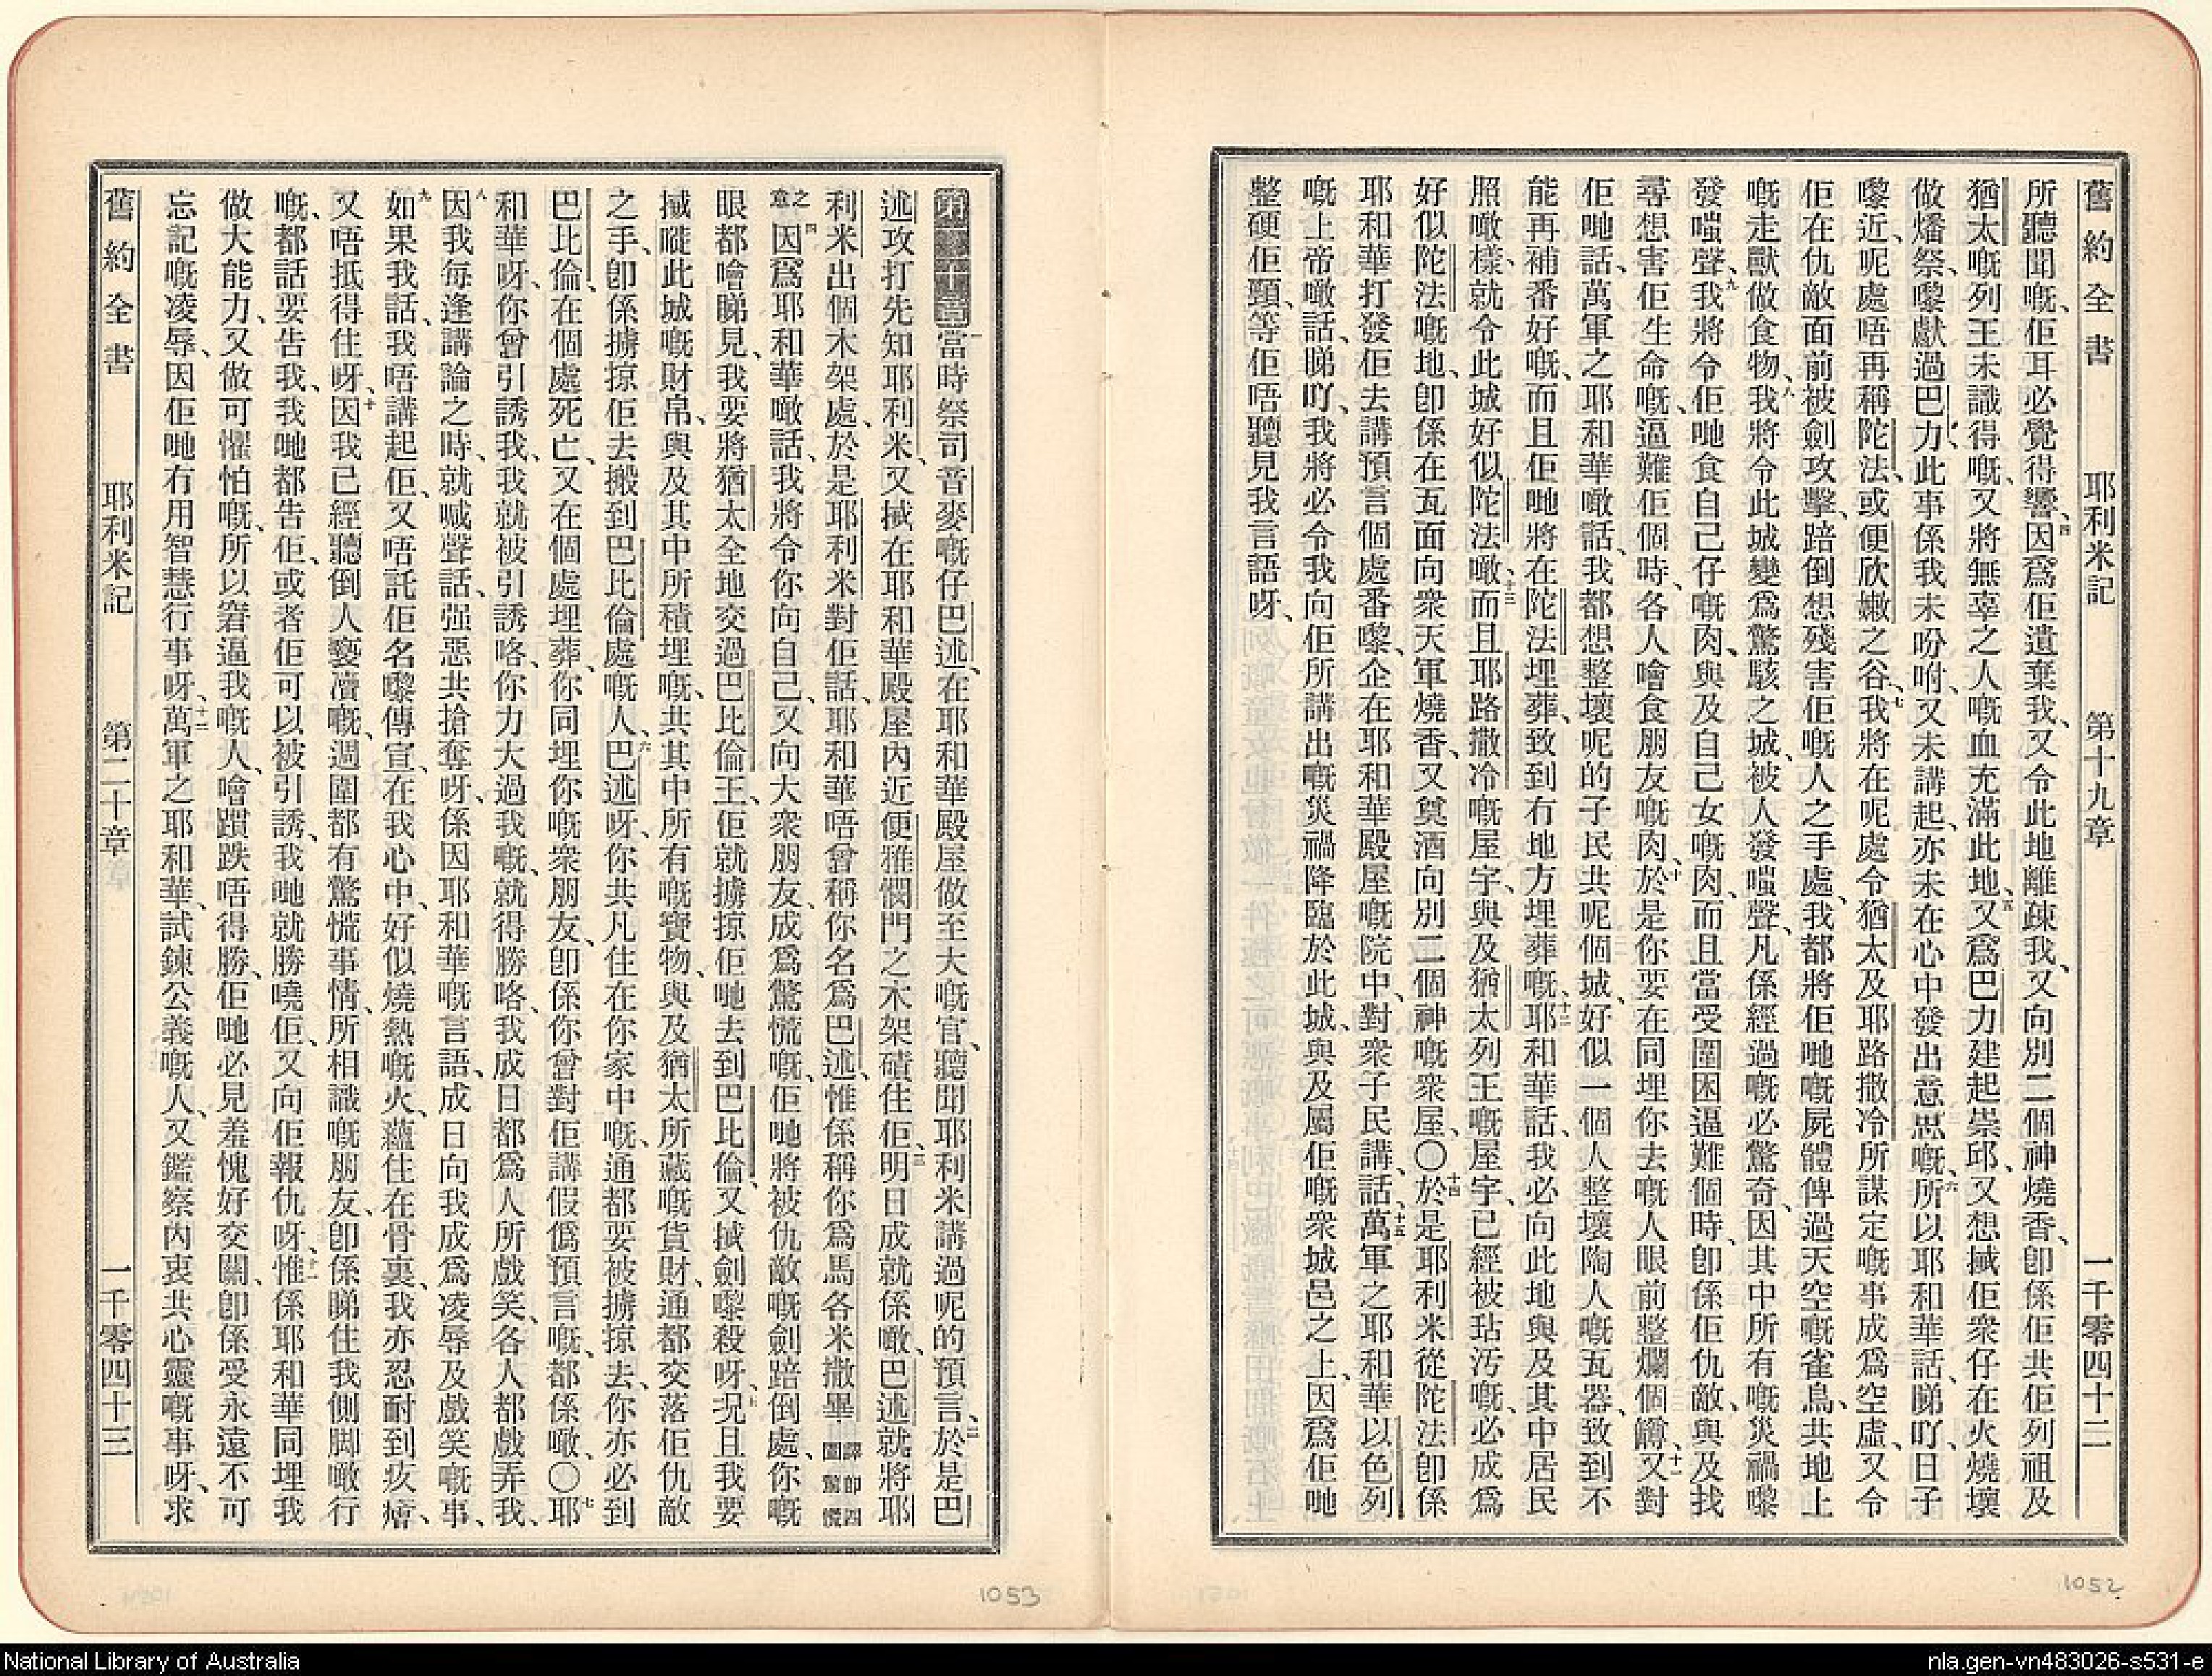 舊約全書 耶利米記 第十九章 一千零四十二
所聽聞嘅、佢耳必覺得響、四因爲佢遺棄我、又令此地離疎我、又向別二個神燒香、卽係佢共佢列祖及
猶太嘅列王未識得嘅、又將無辜之人嘅血充滿此地、五又爲巴力建起崇邱、又想搣佢衆仔在火燒壞
做燔祭、嚟獻過巴力、此事係我未吩咐、又未講起、亦未在心中發出意思嘅、六所以耶和華話、睇吖、日子
嚟近、呢處唔再稱陀法、或便欣嫩之谷、七我將在呢處令猶太及耶路撒冷所謀定嘅事成爲空虛、又令
佢在仇敵面前被劍攻擊、踣倒想殘害佢嘅人之手處、我都將佢哋嘅屍體俾過天空嘅雀鳥、共地上
嘅走獸做食物、八我將令此城變爲驚駭之城、被人發嗤聲、凡係經過嘅必驚奇、因其中所有嘅災禍嚟
發嗤聲、九我將令佢哋食自己仔嘅肉、與及自己女嘅肉、而且當受圍困逼難個時、卽係佢仇敵、與及找
尋想害佢生命嘅、逼難佢個時、各人噲食朋友嘅肉、十於是你要在同埋你去嘅人眼前整爛個罇、十一又對
佢哋話、萬軍之耶和華噉話、我都想整壞呢的子民共呢個城、好似一個人整壞陶人嘅瓦器、致到不
能再補番好嘅、而且佢哋將在陀法埋葬、致到冇地方埋葬嘅、十二耶和華話、我必向此地與及其中居民
照噉樣、就令此城好似陀法噉、十三而且耶路撒冷嘅屋宇、與及猶太列王嘅屋宇、已經被玷汚嘅、必成爲
好似陀法嘅地、卽係在瓦面向衆天軍燒香、又奠酒向別二個神嘅衆屋、〇十四於是耶利米從陀法卽係
耶和華打發佢去講預言個處番嚟、企在耶和華殿屋嘅院中、對衆子民講、話、十五萬軍之耶和華以色列
嘅上帝噉話、睇吖、我將必令我向佢所講出嘅災禍降臨於此城、與及屬佢嘅衆城邑之上、因爲佢哋
整硬佢頸、等佢唔聽見我言語呀、
1052
一當時祭司音麥嘅仔巴述、在耶和華殿屋做至大嘅官、聽聞耶利米講過呢的預言、二於是巴
述攻打先知耶利米、又搣在耶和華殿屋內近便雅憫門之木架磧住佢、三明日成就係噉、巴述就將耶
利米出個木架處、於是耶利米對佢話、耶和華唔曾稱你名爲巴述、惟係稱你爲馬各米撒畢譯卽四圍驚慌
之意四因爲耶和華噉話、我將令你向自己、又向大衆朋友、成爲驚慌嘅、佢哋將被仇敵嘅劍踣倒處、你嘅
眼都噲睇見、我要將猶太全地交過巴比倫王、佢就擄掠佢哋去到巴比倫、又搣劍嚟殺呀、五况且我要
搣嗮此城嘅財帛、與及其中所積埋嘅、共其中所有嘅寶物、與及猶太所藏嘅貨財、通都交落佢仇敵
之手、卽係擄掠佢去搬到巴比倫處嘅人、六巴述呀、你共凡住在你家中嘅、通都要被擄掠去、你亦必到
巴比倫、在個處死亡、又在個處埋葬、你同埋你嘅衆朋友、卽係你曾對佢講假僞預言嘅、都係噉、〇七耶
和華呀、你曾引誘我、我就被引誘咯、你力大過我嘅、就得勝咯、我成日都爲人所戲笑、各人都戲弄我、
八因我每逢講論之時、就喊聲話、强惡共搶奪呀、係因耶和華嘅言語、成日向我成爲凌辱及戲笑嘅事、
九如果我話、我唔講起佢、又唔託佢名嚟傳宣、在我心中、好似燒熱嘅火、蘊住在骨裏、我亦忍耐到疚癐、
又唔抵得住呀、十因我已經聽倒人褻瀆嘅、週圍都有驚慌事情、所相識嘅朋友、卽係睇住我側脚噉行
嘅、都話要告我、我哋都告佢、或者佢可以被引誘、我哋就勝嘵佢、又向佢報仇呀、十一惟係耶和華同埋我
做大能力、又做可懼怕嘅、所以窘逼我嘅人、噲躓跌唔得勝、佢哋必見羞愧好交關、卽係受永遠不可
忘記嘅凌辱、因佢哋冇用智慧行事呀、十二萬軍之耶和華、試鍊公義嘅人、又鑑察內衷共心靈嘅事呀、求
舊約全書 耶利米記 第二十章 一千零四十三
1053
National Library of Australia
nla.gen-vn483026-s531-e